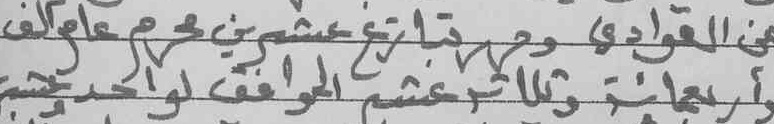 عن القوادي وحرر بتاريخ عشرين محرم عام ألف
وأربعمائة وثلاثة عشر الموافق لواحد وعشرين